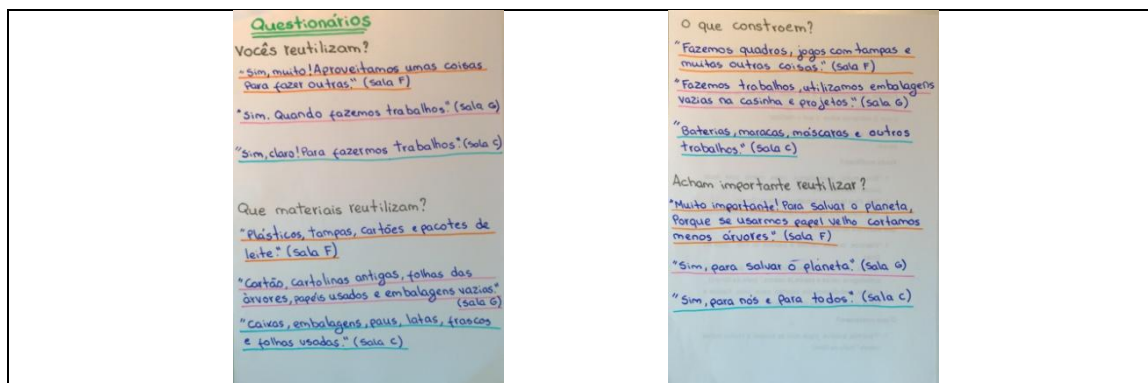 Questionários
Vocês reutilizam?
"Sim, muito! Aproveitamos umas coisas
Para fazer outras." (Sala F)
"Sim. Quando fazemos trabalhos". (Sala G)
"Sim, claro! Para fazermos trabalhos". (Sala C)
Que materiais reutilizam?
"Plásticos, tampas, cartões e pacotes de
leite." (Sala F)
"Cartão, cartolinas antigas, folhas das
árvores, papéis usados e embalagens vazias."
(Sala G)
"Caixas, embalagens, paus, latas, frascos
e folhas usadas." (Sala C)
O que constroem?
"Fazemos quadros, jogos com tampas e
muitas outras coisas." (Sala F)
"Fazemos trabalhos, utilizamos embalagens
vazias na casinha e projetos." (Sala G)
"Baterias, maracas, máscaras e outros
trabalhos." (Sala C)
Acham importante reutilizar?
"Muito importante! Para salvar o planeta,
Porque se usarmos papel velho cortamos
menos árvores." (Sala F)
"Sim, para salvar o planeta." (Sala G)
"Sim, para nós e Para todos". (Sala C)